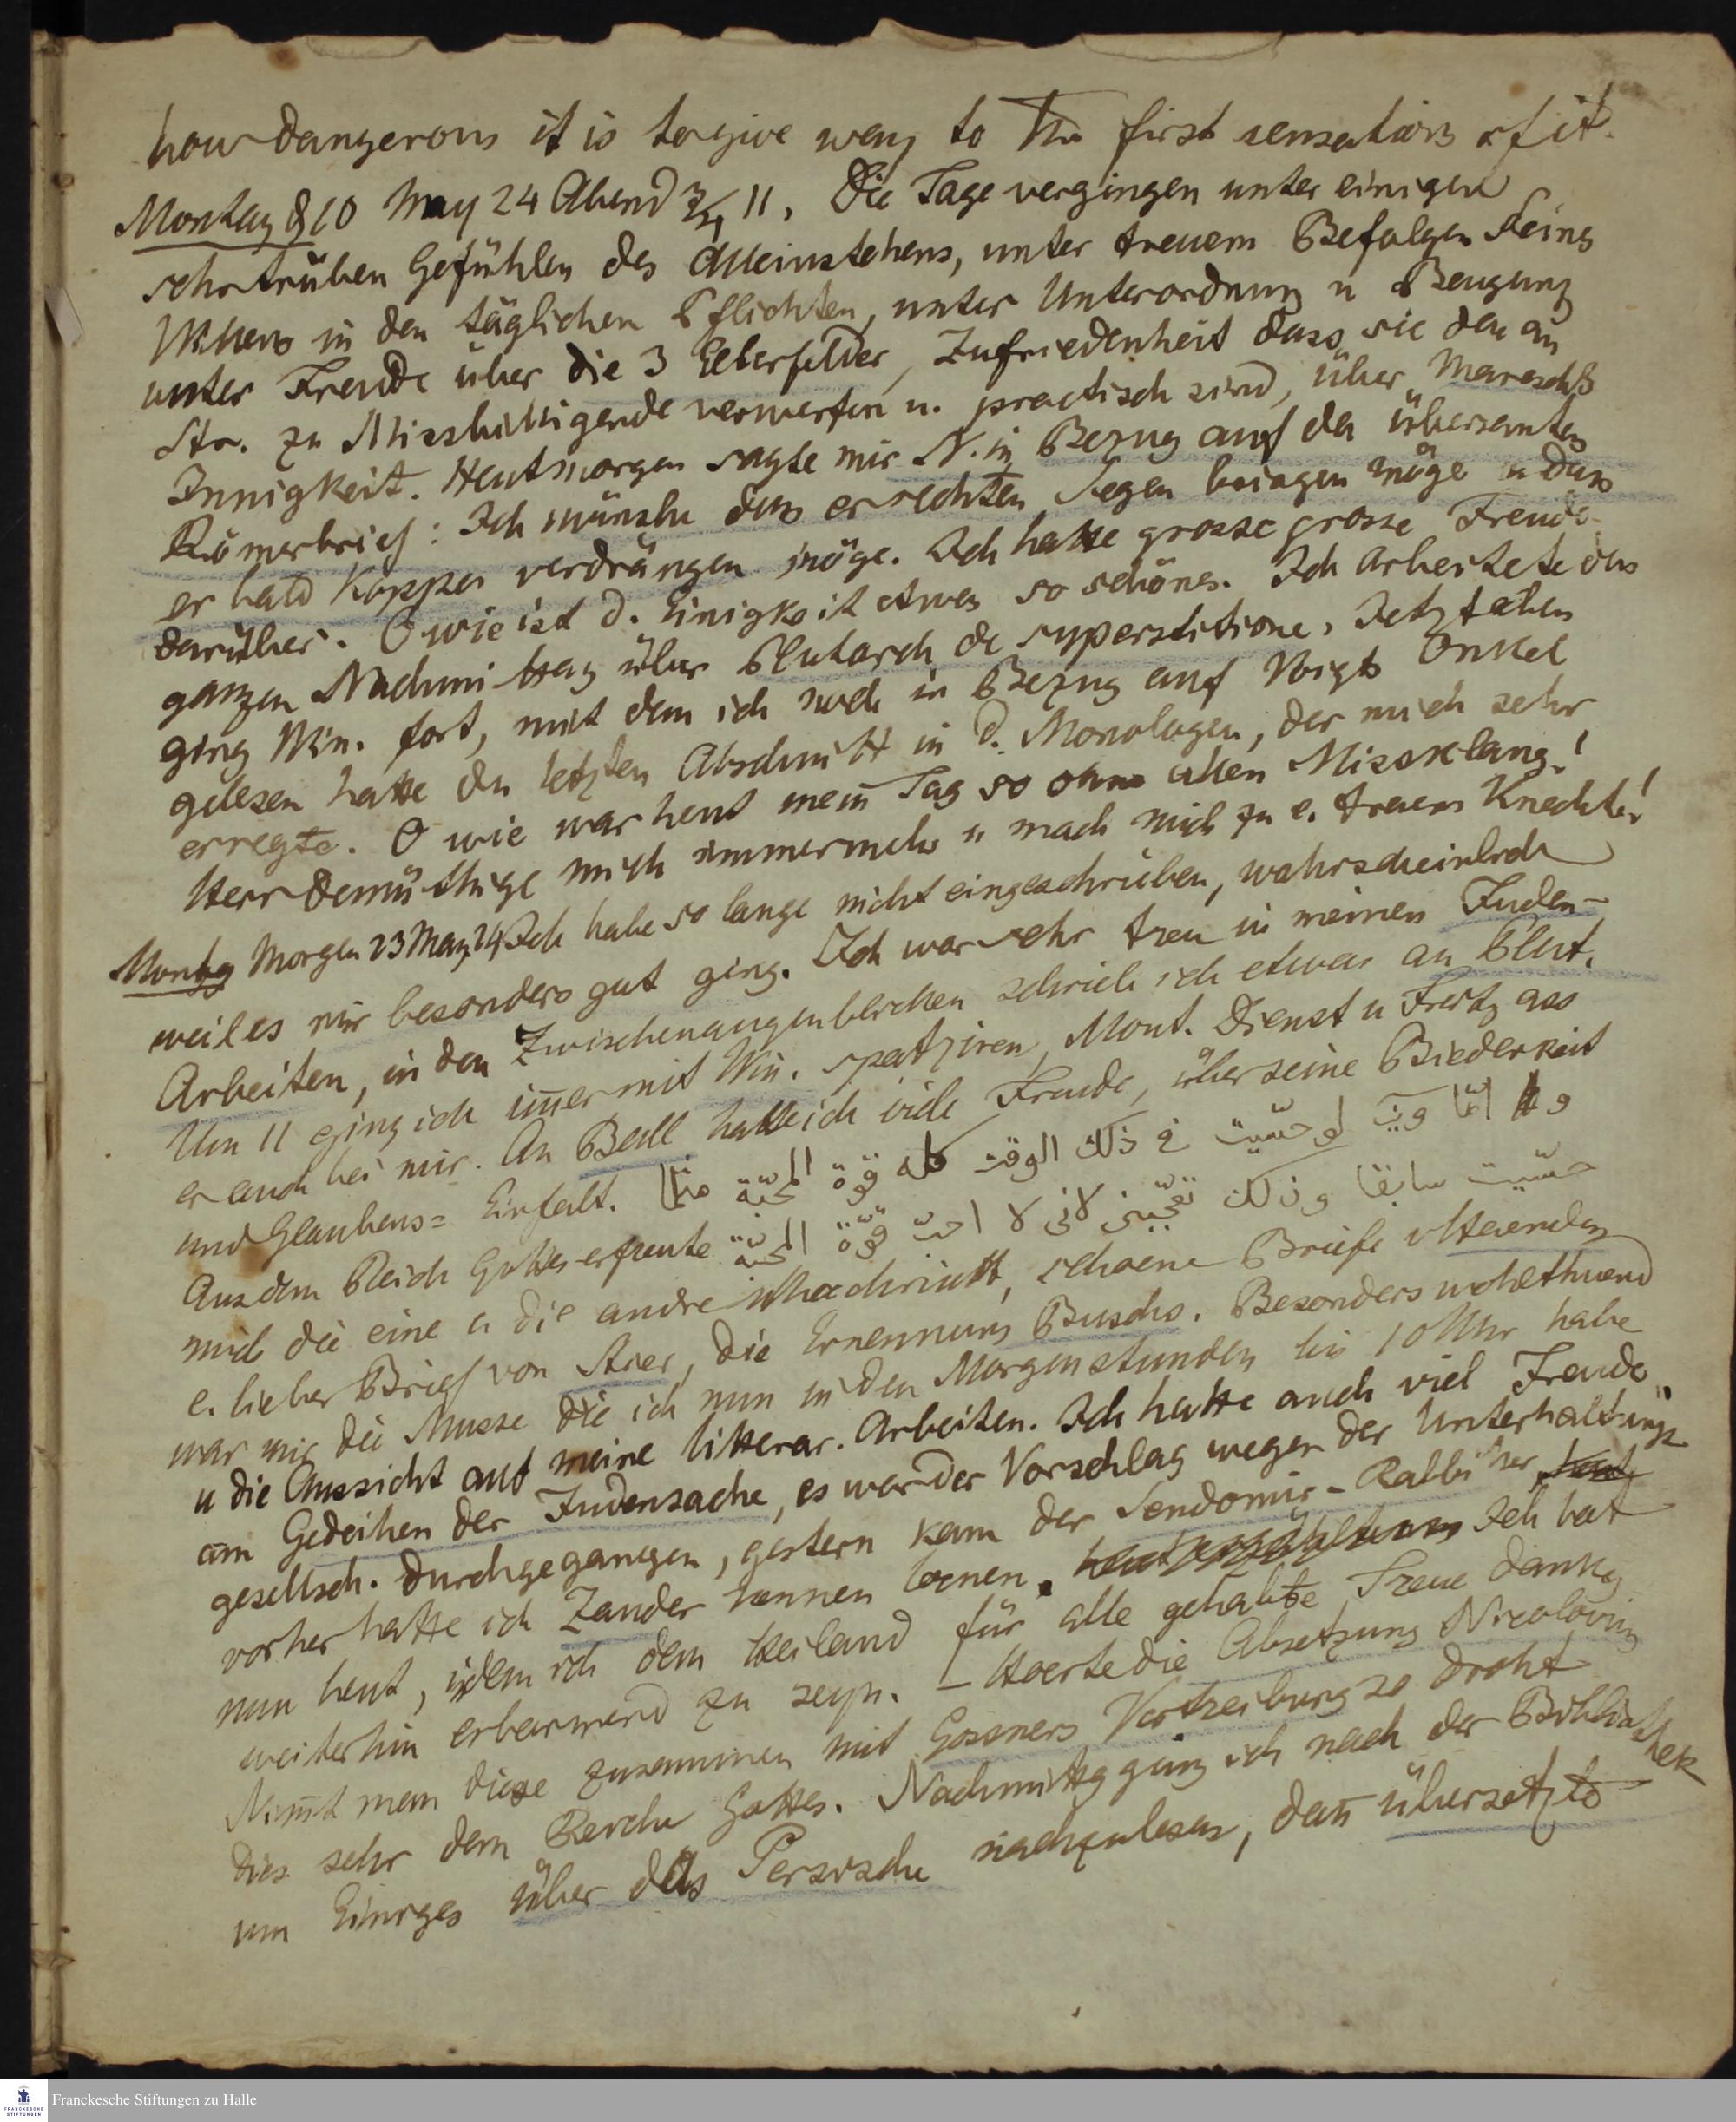 how dangerous it is to give way to the first sensations of it.
Montag d 10 May 24 Abend 3/4 11. Die Tage vergingen unter einigen
sehr trüben Gefühlen des Alleinstehens, unter treuem Befolgen Seines
Willens in den täglichen Pflichten, unter Unterordnung u Beugung
unter Freude über die 3 Elberfelder, Zufriedenheit dass sie den an
Str. zu Missbilligende verwerfen u. practisch sind, über
Innigkeit. Heut morgen sagte mir N. in Bezug auf den übersandten
Römerbrief: Ich wünsche dass er rechten Segen bringen möge u dass
er bald Koppen verdrängen möge. Ich hatte grosse grosse Freude
darüber. O wie ist d. Einigkeit etwas so schönes. Ich arbeitete den
ganzen Nachmittag über Plutarch de superstitione. Jetzt eben
ging Win. fort, mit dem ich noch in Bezug auf Voigts Onkel
gelesen hatte den letzten Abschnitt in d. Monologen, der mich sehr
erregte. O wie war heut mein Tag so ohne allen Missklang!
Herr demüthige mich immermehr u mach mich zu e. treuen Knechte!
Montag Morgen 23 May 24 Ich habe so lange nicht eingeschrieben, wahrscheinlich
weil es mir besonders gut ging. Ich war sehr treu in meinen Juden-
Arbeiten, in den Zwischenaugenblicken schrieb ich etwas an Plut.
Um 11 ging ich im̅er mit Win. spatziren, Mont. Dienst u Freitg ass
er auch bei mir. An Bell hatte ich viele Freude, über seine Biederkeit
und Glaubens= Einfalt. لو حسّيت في ذلك الوقت كله قوّة المحبّة
Aus dem Reich Gottes erfreute حسّيت سابقا وذلك لانى لا قوّة المحبّة
mich die eine u die andre Nachricht, schoene Briefe
e. lieber Brief von Stier, die Ernennung Buschs. Besonders wohlthuend
war mir die Musse die ich nun in den Morgenstunden bis 10 Uhr habe
u die Aussicht auf meine litterar. Arbeiten. Ich hatte auch viel Freude
am Gedeihen der Judensache, es war der Vorschlag wegen der Unterhaltungs
gesellsch. durchgegangen, gestern kam der Sendomir-Rabbiner,
vorher hatte ich Zander kennen lernen. Ich bat
nun heut, indem ich dem Heiland für alle gehabte Treue danke,
weiterhin erbarmend zu seyn. – Hoerte die Absetzung Nicolovius
Nim̅t man diese zusammen mit Gossners Vertreibung so droht
dies sehr dem Reiche Gottes. Nachmittg ging ich nach der Bibliothek
um Einiges über das Persische nachzulesen, dan̅ übersetzte
Franckesche Stiftungen zu Halle
FRANCKESCHE
STIFTUNGEN